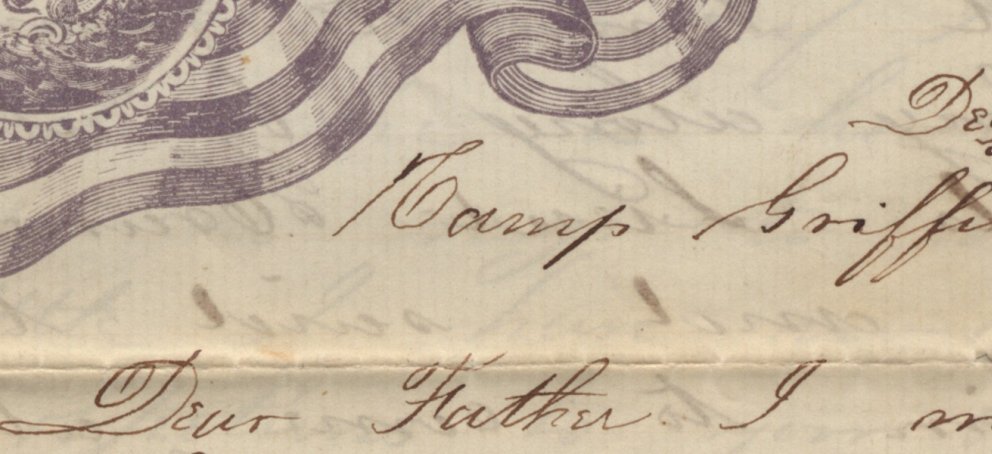 Camp Griffi
Dear Father I